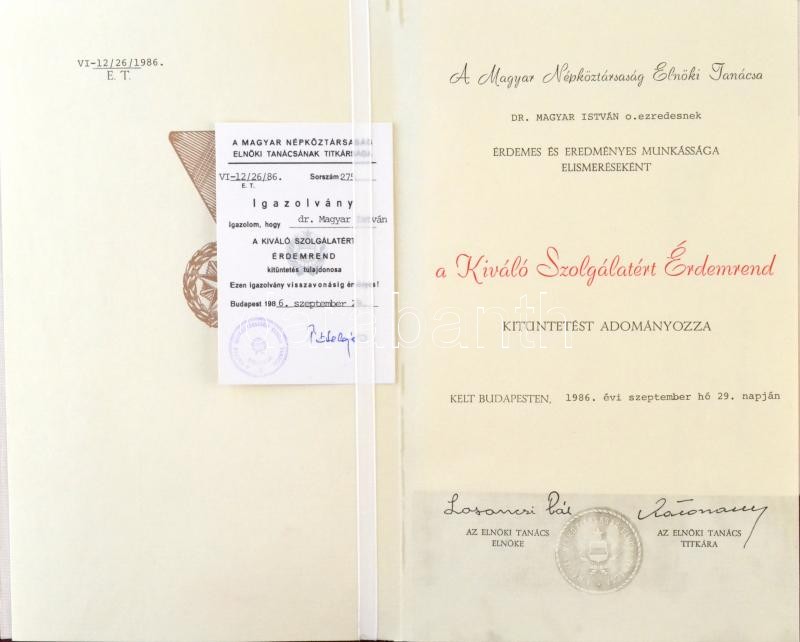 VI-12/26/1986.
E. T.
A MAGYAR NÉPKÖZTÁRSASÁG
ELNÖKI TANÁCSÁNAK TITKÁRSÁGA
VI-12/26/86. Sorszám
E. T.
Igazolvány
igazolom, hogy dr. Magyar István
A KIVÁLÓ SZOLGÁLATÉRT
ÉRDEMREND
kitüntetés tulajdonosa
Ezen igazolvány visszavonásig érvényes!
Budapest 1986. szeptember
A Magyar Népköztársaság Elnöki Tanácsa
DR. MAGYAR ISTVÁN o.ezredesnek
ÉRDEMES ÉS EREDMÉNYES MUNKÁSSÁGA
ELISMERÉSEKÉNT
a Kiváló Szolgálatért Érdemrend
KITÜNTETÉST ADOMÁNYOZZA
KELT BUDAPESTEN, 1986. évi szeptember hó 29. napján
Losonczi Pál
AZ ELNÖKI TANÁCS
ELNÖKE
AZ ELNÖKI TANÁCS
TITKÁRA